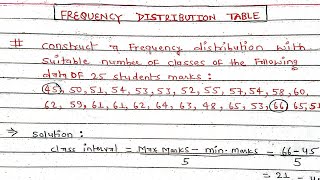 FREQUENCY DISTRIBUTION TABLE
# Construct a Frequency distribution with
suitable number of classes of the Following
data OF 25 students marks :
45, 50, 51, 54, 53, 53, 52, 55, 57, 54, 58, 60,
62, 59, 61, 61, 62, 64, 63, 48, 65, 53, 66, 65, 51
→ Solution :
class interval = Max Marks - min. marks = 66-45
5 5
= 21